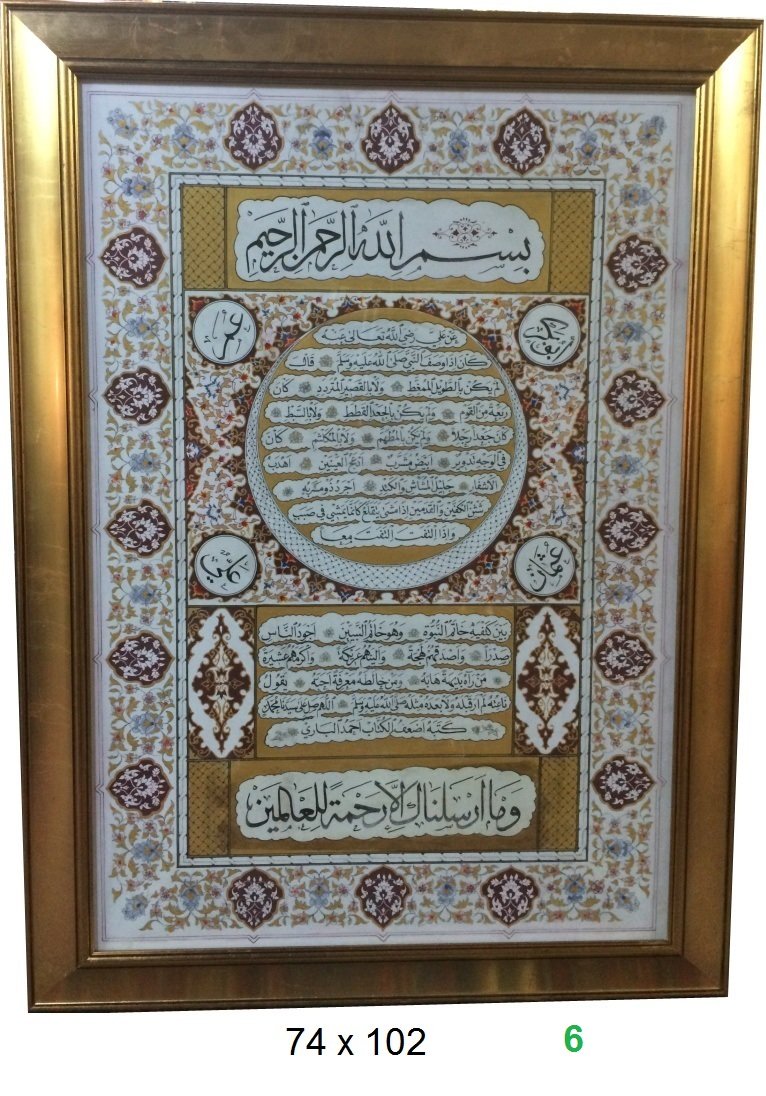 بسم الله الرحمن الرحيم
ابوبكر
عمر
عن علي رضي الله تعالى عنه
كان اذا وصف النبي صلى الله عليه وسلم قال
لم يكن بالطويل الممغط ولا بالقصير المتردد كان
ربعة من القوم ولم يكن بالجعد القطط ولا بالسبط
كان جعدا رجلا ولم يكن بالمطهم ولا بالمكلثم كان
في الوجه تدوير ابيض مشرب ادعج العينين اهدب
الاشفار جليل المشاش والكتد اجرد ذو مسربة
شثن الكفين والقدمين اذا مشى يتقلع كانما يمشي في صبب
واذا التفت التفت معا
عثمان
علي
بين كتفيه خاتم النبوة وهو خاتم النبيين اجود الناس
صدرا واصدقهم لهجة والينهم عريكة واكرمهم عشيرة
من راه بديهة هابه ومن خالطه معرفة احبه يقول
ناعته لم ار قبله ولا بعده مثله صلى الله عليه وسلم اللهم صل على سيدنا محمد
كتبه اضعف الكتاب احمد الباري
وما ارسلناك الا رحمة للعالمين
74 x 102
6